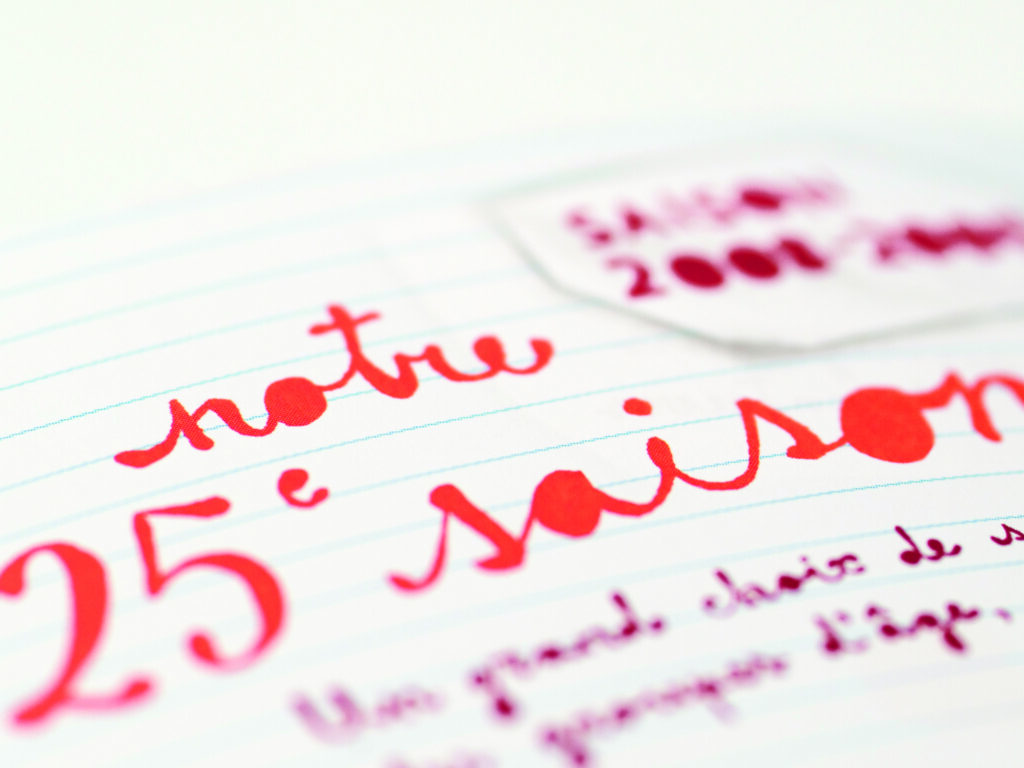 SAISON
2001
notre
25e saison
Un grand choix de
groupes d'âge,